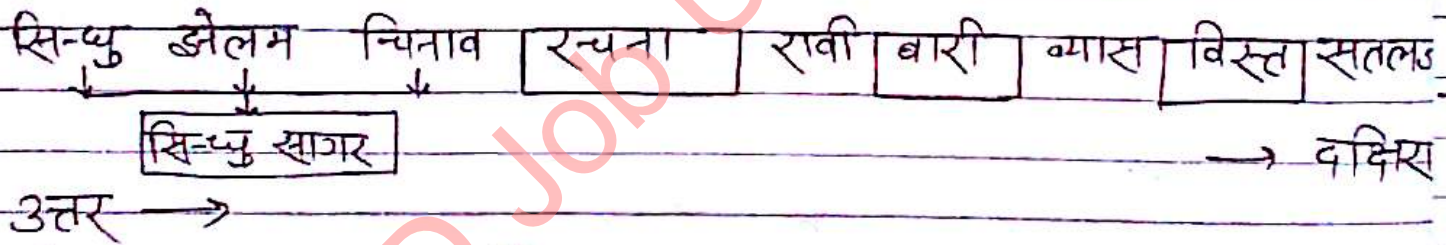 सिन्धु झेलम चिनाव रचना रावी बारी व्यास विस्त सतलज
सिन्धु सागर → दक्षिण
उत्तर →
Job